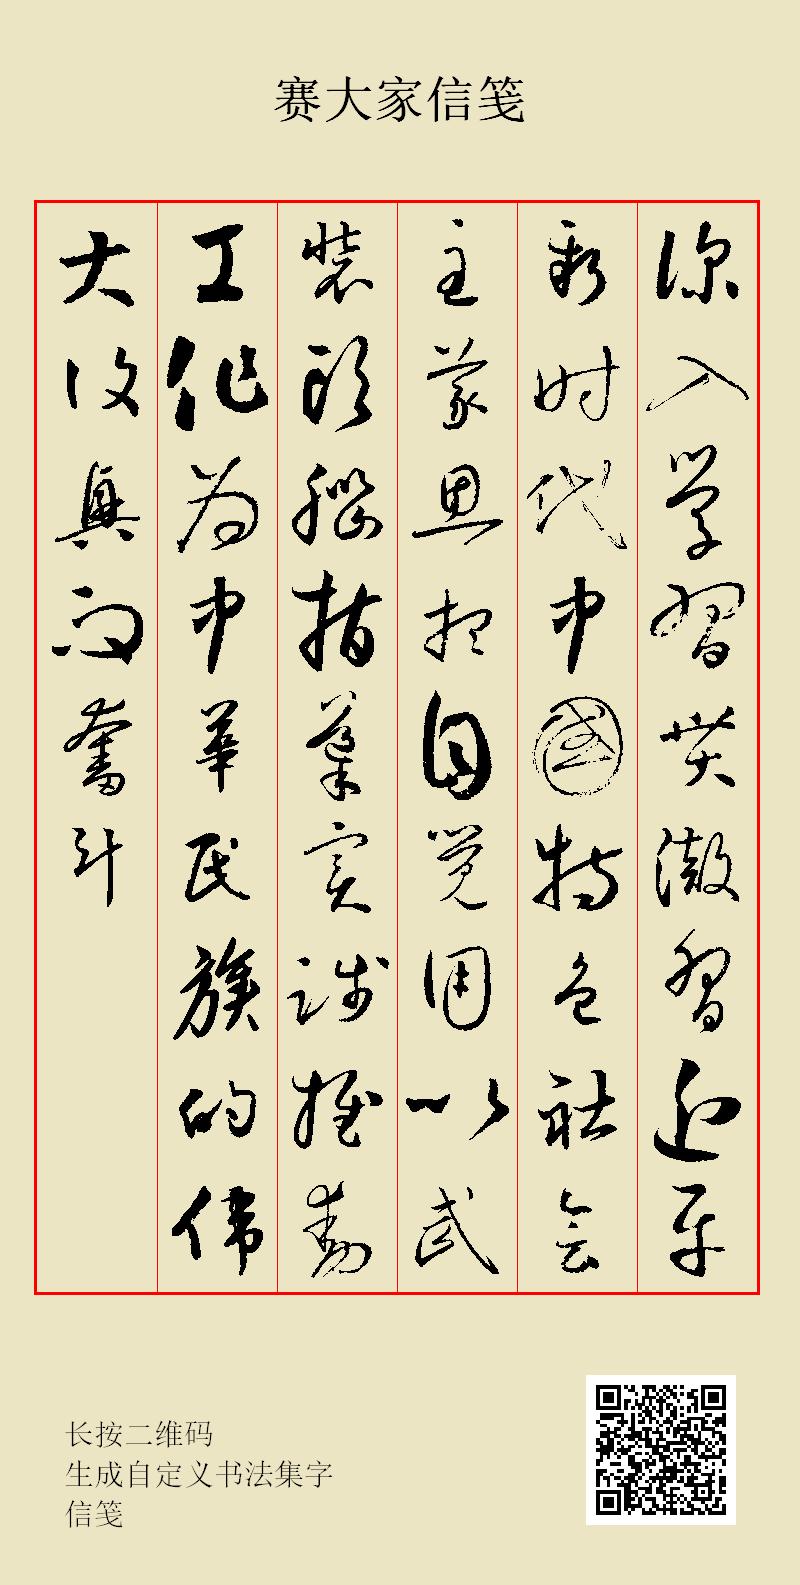 赛大家信笺
深入学習贯澈習近平
新时代中國特色社会
主义思想自觉用以武
装头脑指导实践推动
工作为中華民族的伟
大复興而奮斗
长按二维码
生成自定义书法集字
信笺